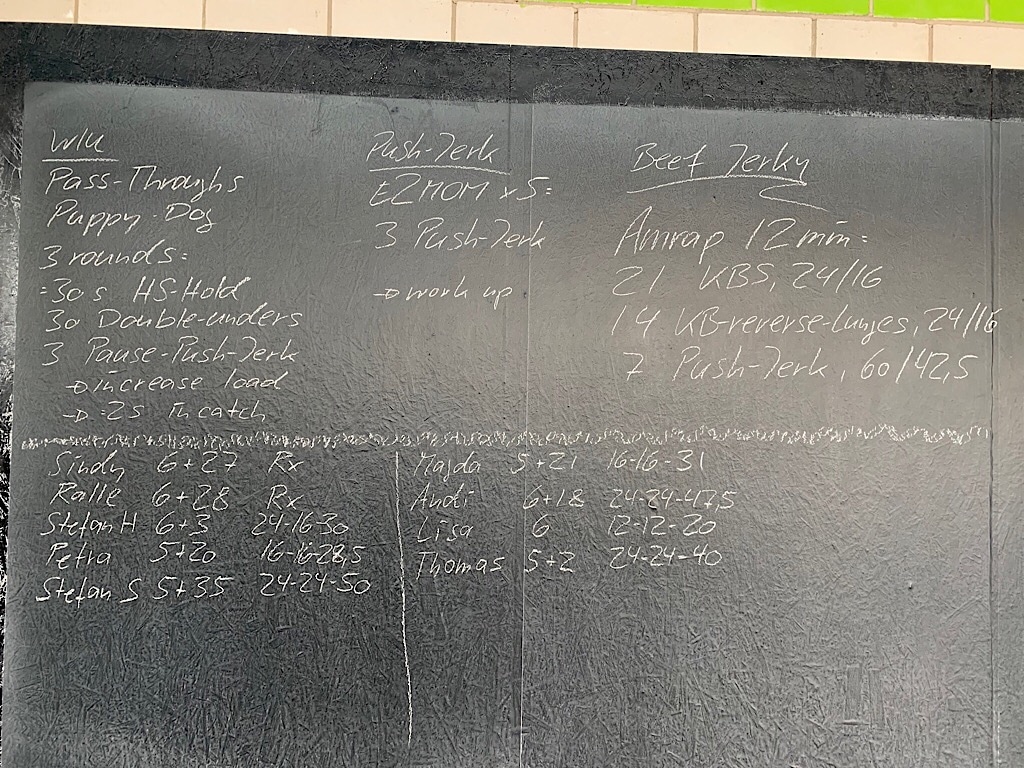 WU
Pass-Throughs
Puppy-Dog
3 rounds:
:30s HS-Hold
30 Double-unders
3 Pause-Push-Jerk
→ increase load
→ :2s in catch
Push-Jerk
E2MOM x 5:
3 Push-Jerk
→ work up
Beef Jerky
Amrap 12 min:
21 KBS, 24/16
14 KB-reverse-lunges, 24/16
7 Push-Jerk, 60/42,5
Sindy 6+27 Rx
Ralle 6+28 Rx
Stefan H 6+3 24-16-30
Petra 5+20 16-16-28,5
Stefan S 5+35 24-24-50
Majda 5+21 16-16-31
Andi 6+18 24-24-47,5
Lisa 6 12-12-20
Thomas 5+2 24-24-40